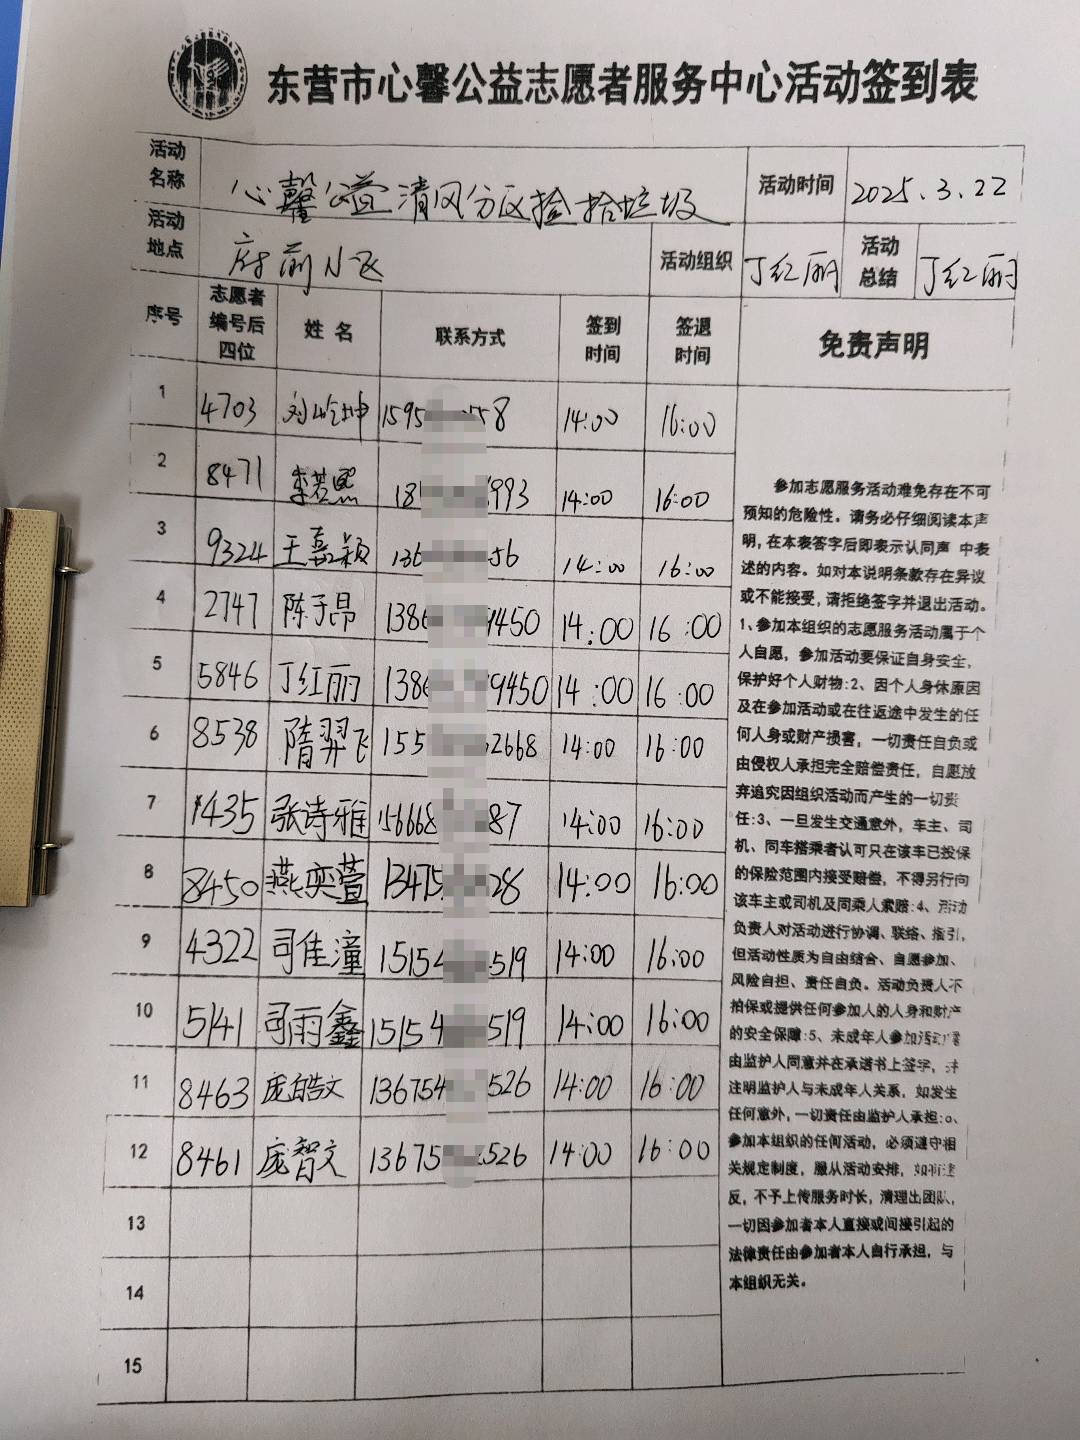 东营市心馨公益志愿者服务中心活动签到表
活动名称 心馨公益清风分区捡拾垃圾 活动时间 2025.3.22
活动地点 府前小区 活动组织 丁红丽 活动总结 丁红丽
序号 志愿者编号后四位 姓名 联系方式 签到时间 签退时间 免责声明
1 4703 刘 坤 1595 58 14:00 16:00
2 8471 李若熙 18 993 14:00 16:00
3 9324 王嘉颖 136 56 14:00 16:00
4 2747 陈子昂 1386 9450 14:00 16:00
5 5846 丁红丽 1386 9450 14:00 16:00
6 8538 隋羿飞 155 2668 14:00 16:00
7 1435 张诗雅 156668 87 14:00 16:00
8 8450 燕奕萱 13475 28 14:00 16:00
9 4322 司佳潼 15154 519 14:00 16:00
10 5141 司雨鑫 15154 519 14:00 16:00
11 8463 庞皓文 136754 526 14:00 16:00
12 8461 庞智文 13675 526 14:00 16:00
13
14
15
参加志愿服务活动难免存在不可
预知的危险性。请务必仔细阅读本声
明,在本表签字后即表示认同声 中表
述的内容。如对本说明条款存在异议
或不能接受,请拒绝签字并退出活动。
1、参加本组织的志愿服务活动属于个
人自愿,参加活动要保证自身安全,
保护好个人财物:2、因个人身休原因
及在参加活动或在往返途中发生的任
何人身或财产损害,一切责任自负或
由侵权人承担完全赔偿责任,自愿放
弃追究因组织活动而产生的一切责
任:3、一旦发生交通意外,车主、司
机、同车搭乘者认可只在该车已投保
的保险范围内接受赔偿,不得另行向
该车主或司机及同乘人索赔:4、活动
负责人对活动进行协调、联络、指引,
但活动性质为自由结合、自愿参加、
风险自担、责任自负。活动负责人不
担保或提供任何参加人的人身和财产
的安全保障:5、未成年人参加活动需
由监护人同意并在承诺书上签字,并
注明监护人与未成年人关系,如发生
任何意外,一切责任由监护人承担:
参加本组织的任何活动,必须遵守相
关规定制度,服从活动安排,如有违
反,不予上传服务时长,清理出团队,
一切因参加者本人直接或间接引起的
法律责任由参加者本人自行承担,与
本组织无关。